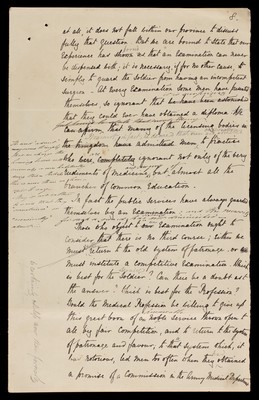 8.
at all, it does not fall within our province to discuss
fully that question. But we are bound to state that our
experience has shown us that an Examination can never
be dispensed with; it is necessary, if for no other cause, to
simply to guard the soldier from having an incompetent
surgeon. At every Examination some men have presented
themselves, so ignorant that we have been astonished
that they could ever have obtained a diploma. We
can affirm that many of the licensing bodies in
the kingdom have admitted men to practice
who were completely ignorant not only of the very
rudiments of medicine, but almost all the
branches of common Education.
In fact the public services have always guarded
themselves by an Examination
Those who object to our Examination ought to
consider that there is no third course; either we
must return to the old system of patronage, or
must institute a competitive Examination. Which
is best for the Soldier? Can there be a doubt as to
the answer? Which is best for the Profession?
Would the Medical Profession be willing to give up
this great boon of a noble service thrown open to
all by fair Competition, and to return to the system
of patronage and favour, to that system which, it
was notorious, led men too often when they obtained
a promise of a Commission in the Army Medical Department